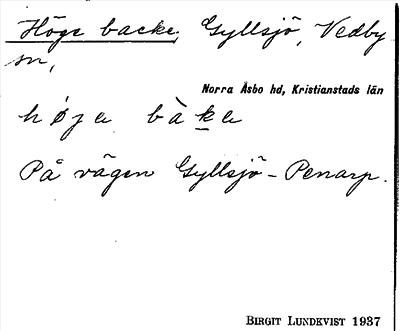 Höge backe, Gyllsjö, Vedby
sn,
Norra Åsbo hd, Kristianstads län
høja bàka
På vägen Gyllsjö - Penarp.
BIRGIT LUNDKVIST 1937